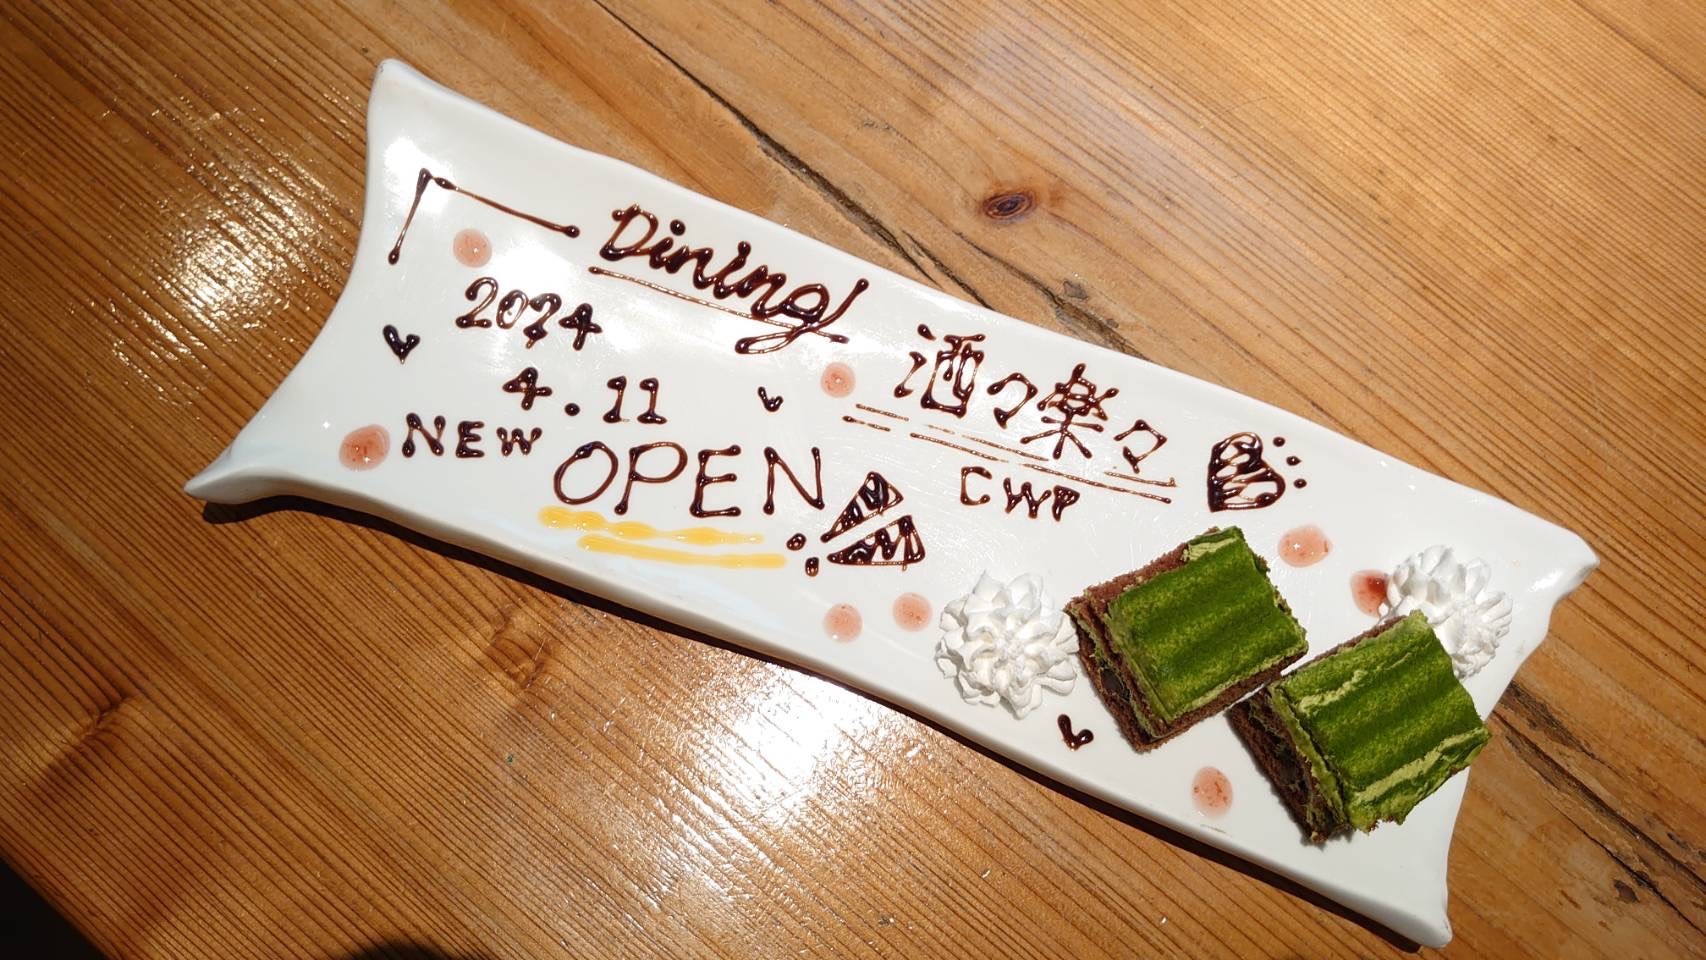 Dining
酒々楽々
CWP
2024
4.11
NEW OPEN